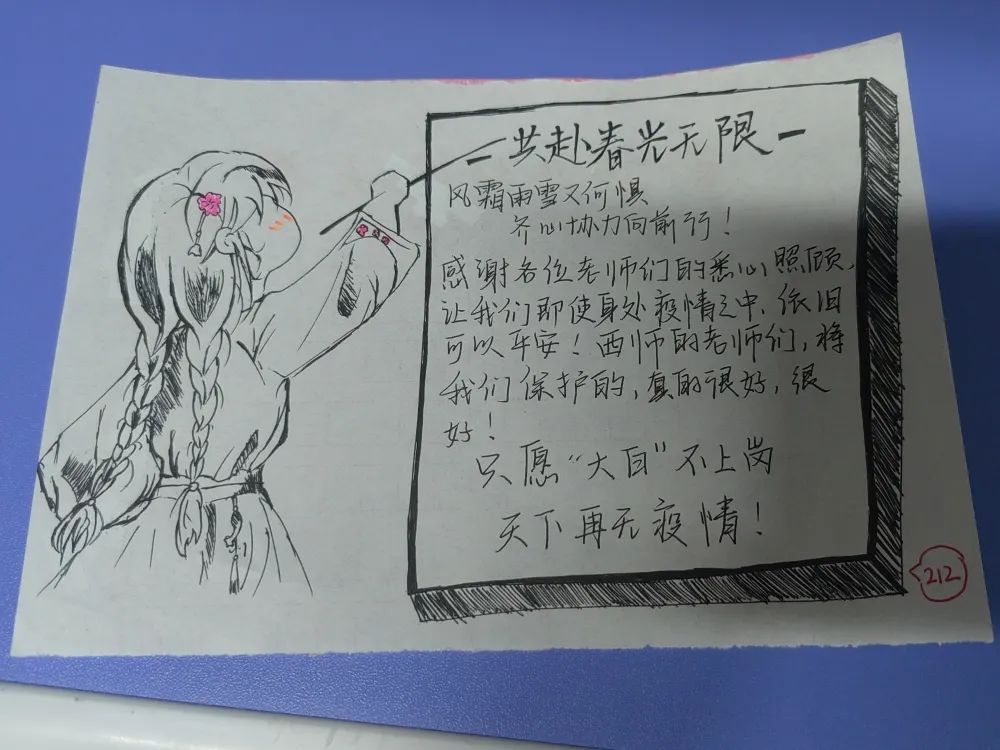 -共赴春光无限-
风霜雨雪又何惧
齐心协力向前行！
感谢各位老师们的悉心照顾，
让我们即使身处疫情之中、依旧
可以平安！西师的老师们，将
我们保护的，真的很好，很
好！
只愿“大白”不上岗
天下再无疫情！
212